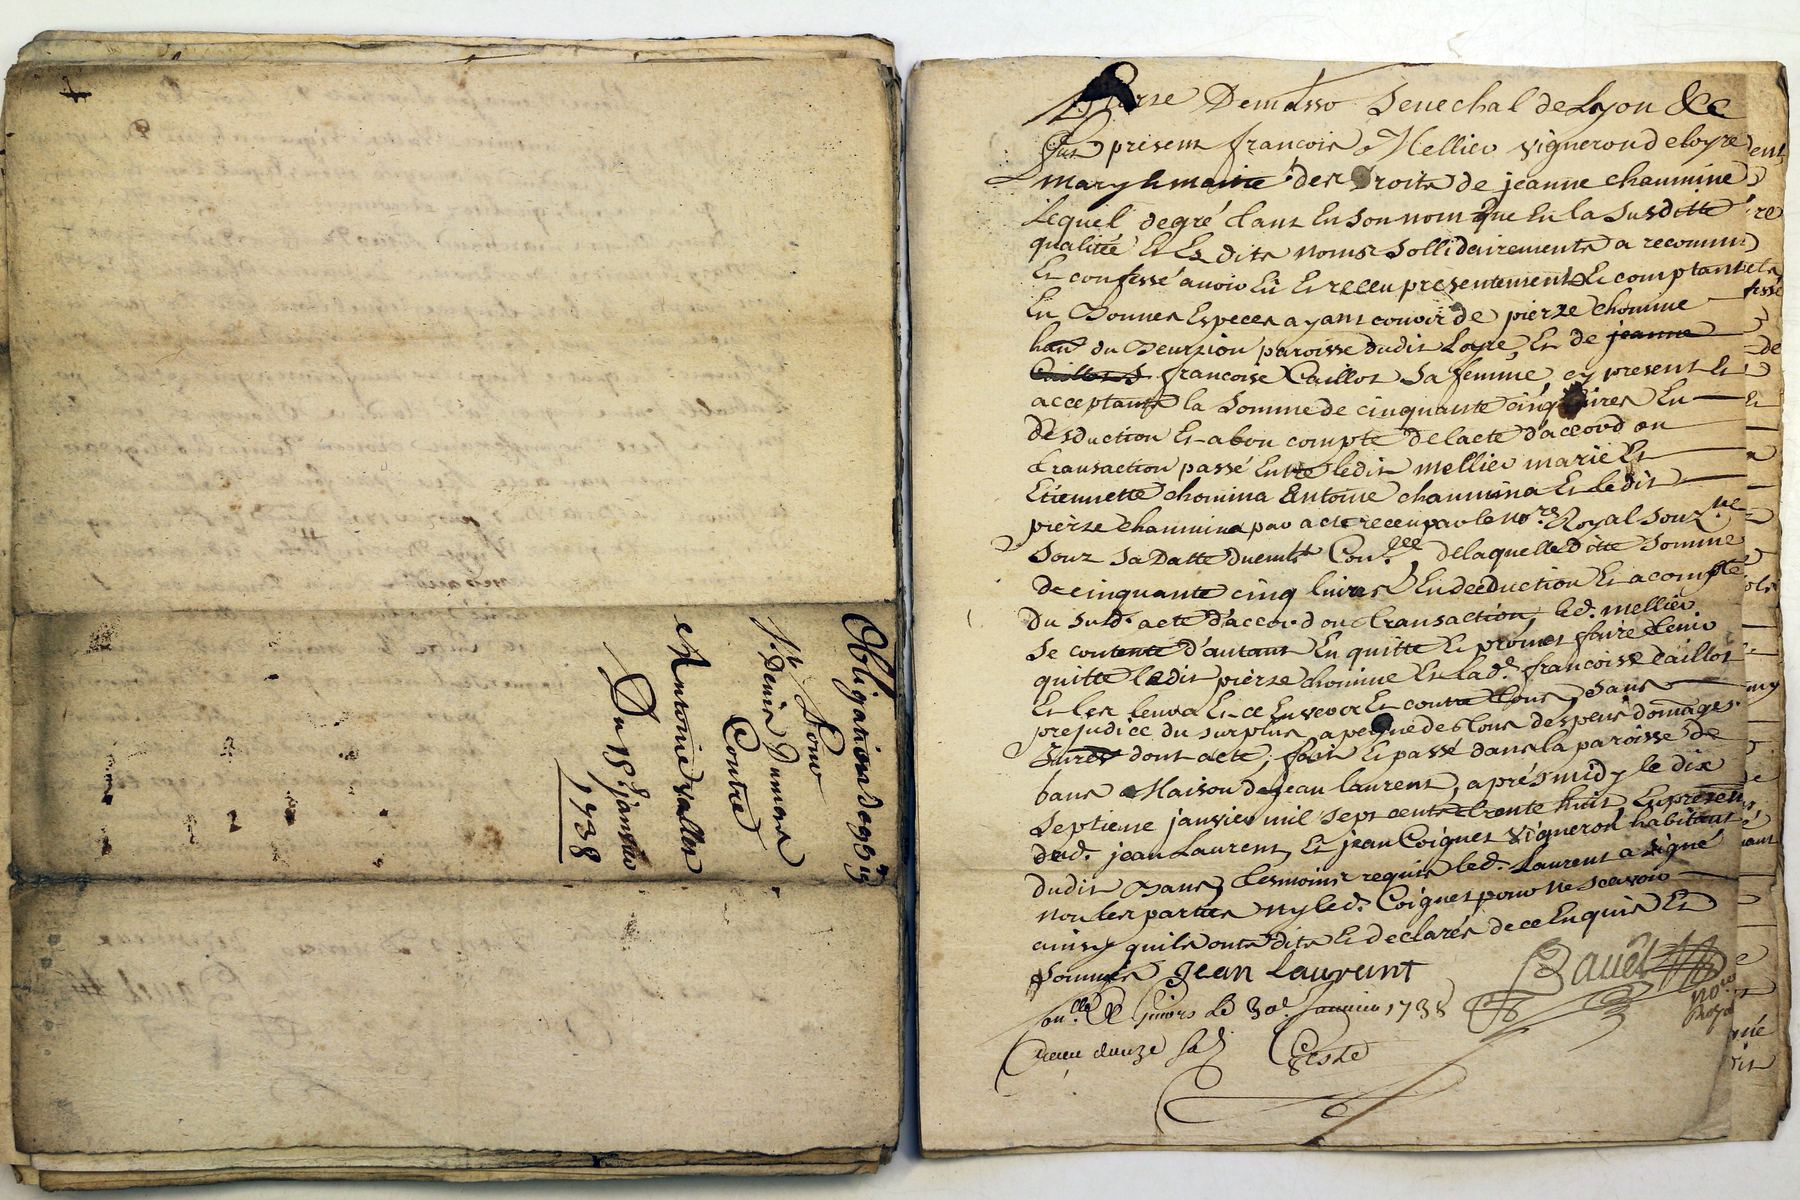 Obligation de 96 ℔ 15
Pour
Sr. Denis Dumas
Contre
Antoine vallet
Du 18e janvier
1738
Pierre Demasso Senechal de Lyon &c
fut present francois Mellier vigneron de loyre
mary & maitre des droits de jeanne chaumine
Lequel de gré tant En son nom que En la Susditte
qualitée Et Es dits noms Sollidairements a reconnu
Et confessé avoir Eü Et receu presentement Et comptant
En Bonnes Especes ayant couvoir de pierre chomine
hant du Seurzion paroisse dudit Loyre, Et de jeanne
Caillot francoise Caillot Sa femme cy present Et
acceptants la Somme de cinquante cinq livres En
desduction Et a bon compte de lacte d'accord ou
transaction passé Entre ledit mellier marie Et
Etiennette chomina Antoine chaumina Et ledit
pierre chaumina par acte receu par le nore. Royal Souz.ne
Souz Sa Datte duemt. Con.llé de laquelle ditte Somme
de cinquante cinq livres En deduction Et a compte
du Sud. acte d'accord ou transaction, led. mellier
Se contente d'autant En quitte Et promet faire tenir
quitte ledit pierre chomine Et lad. francoise Caillot
Et les leurs Et ce Envers Et contre tous, Sans
prejudice du surplus a peine de tous despens domages
Sures dont acte, fait Et passé dans la paroisse de
bans Maison de jean laurent, aprés midy le dix
Septieme janvier mil Sept cent trente huit En presence
dud. jean Laurent, Et jean Coignet vigneron habitants
dudit Bans, tesmoins requis led. Laurent a Signé
non les parties ny led. Coignet pour ne Scavoir
ainsy quils onts dits Et declarés de ce Enquis Et
Sommés Jean Laurent
Bavet
nore
Royal
Con.llé à Givors Le 30e. Janvier 1738
Receu douze s.